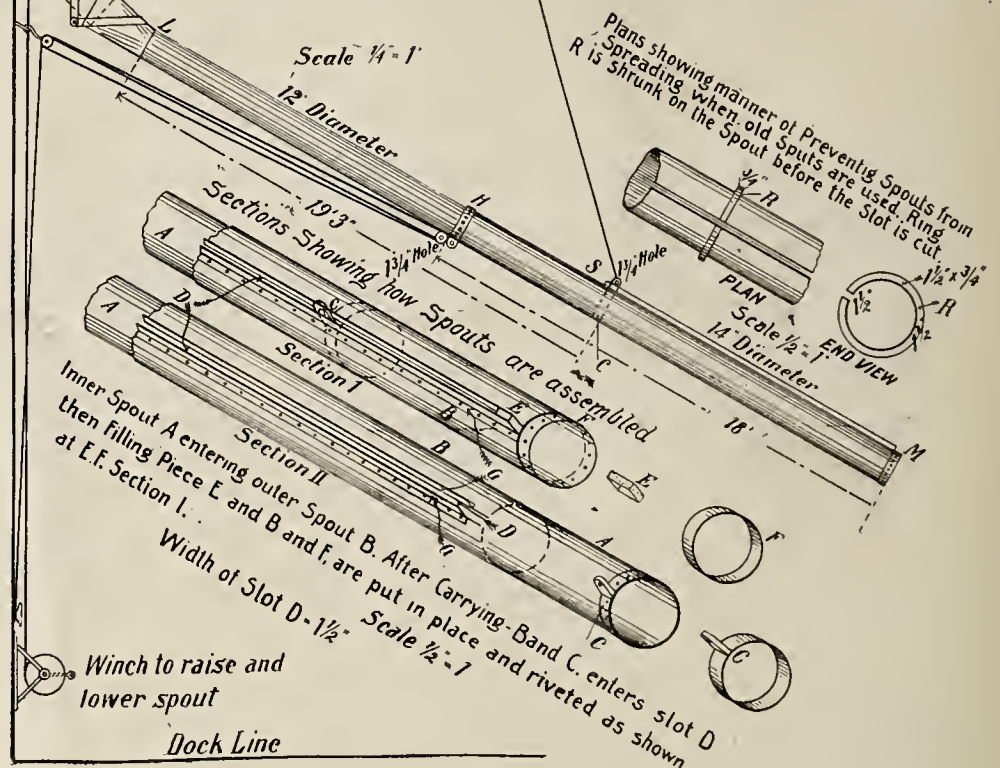 L
Scale 1/4" = 1'
12" Diameter
Plans showing manner of Preventig Spouts from
Spreading when old Sputs are used Ring
R is Shrunk on the Spout before the Slot is cut
3/4"
R
H
19'3"
1 3/4" Hole
S
1 3/4" Hole
PLAN
Scale 1/2" = 1'
1 1/2" x 3/4"
1/2"
R
END VIEW
14" Diameter
C
18'
M
Sections Showing how Spouts are assembled
A
D
C
Section I
B
E
F
G
E
F
A
Section II
B
D
G
A
C
C
Inner Spout A entering outer Spout B. After Carrying-Band C. enters slot D
then Filling Piece E and B and F, are put in place and riveted as shown
at E.F. Section I.
Width of Slot D = 1 1/2"
Scale 1/2" = 1
Winch to raise and
lower spout
Dock Line